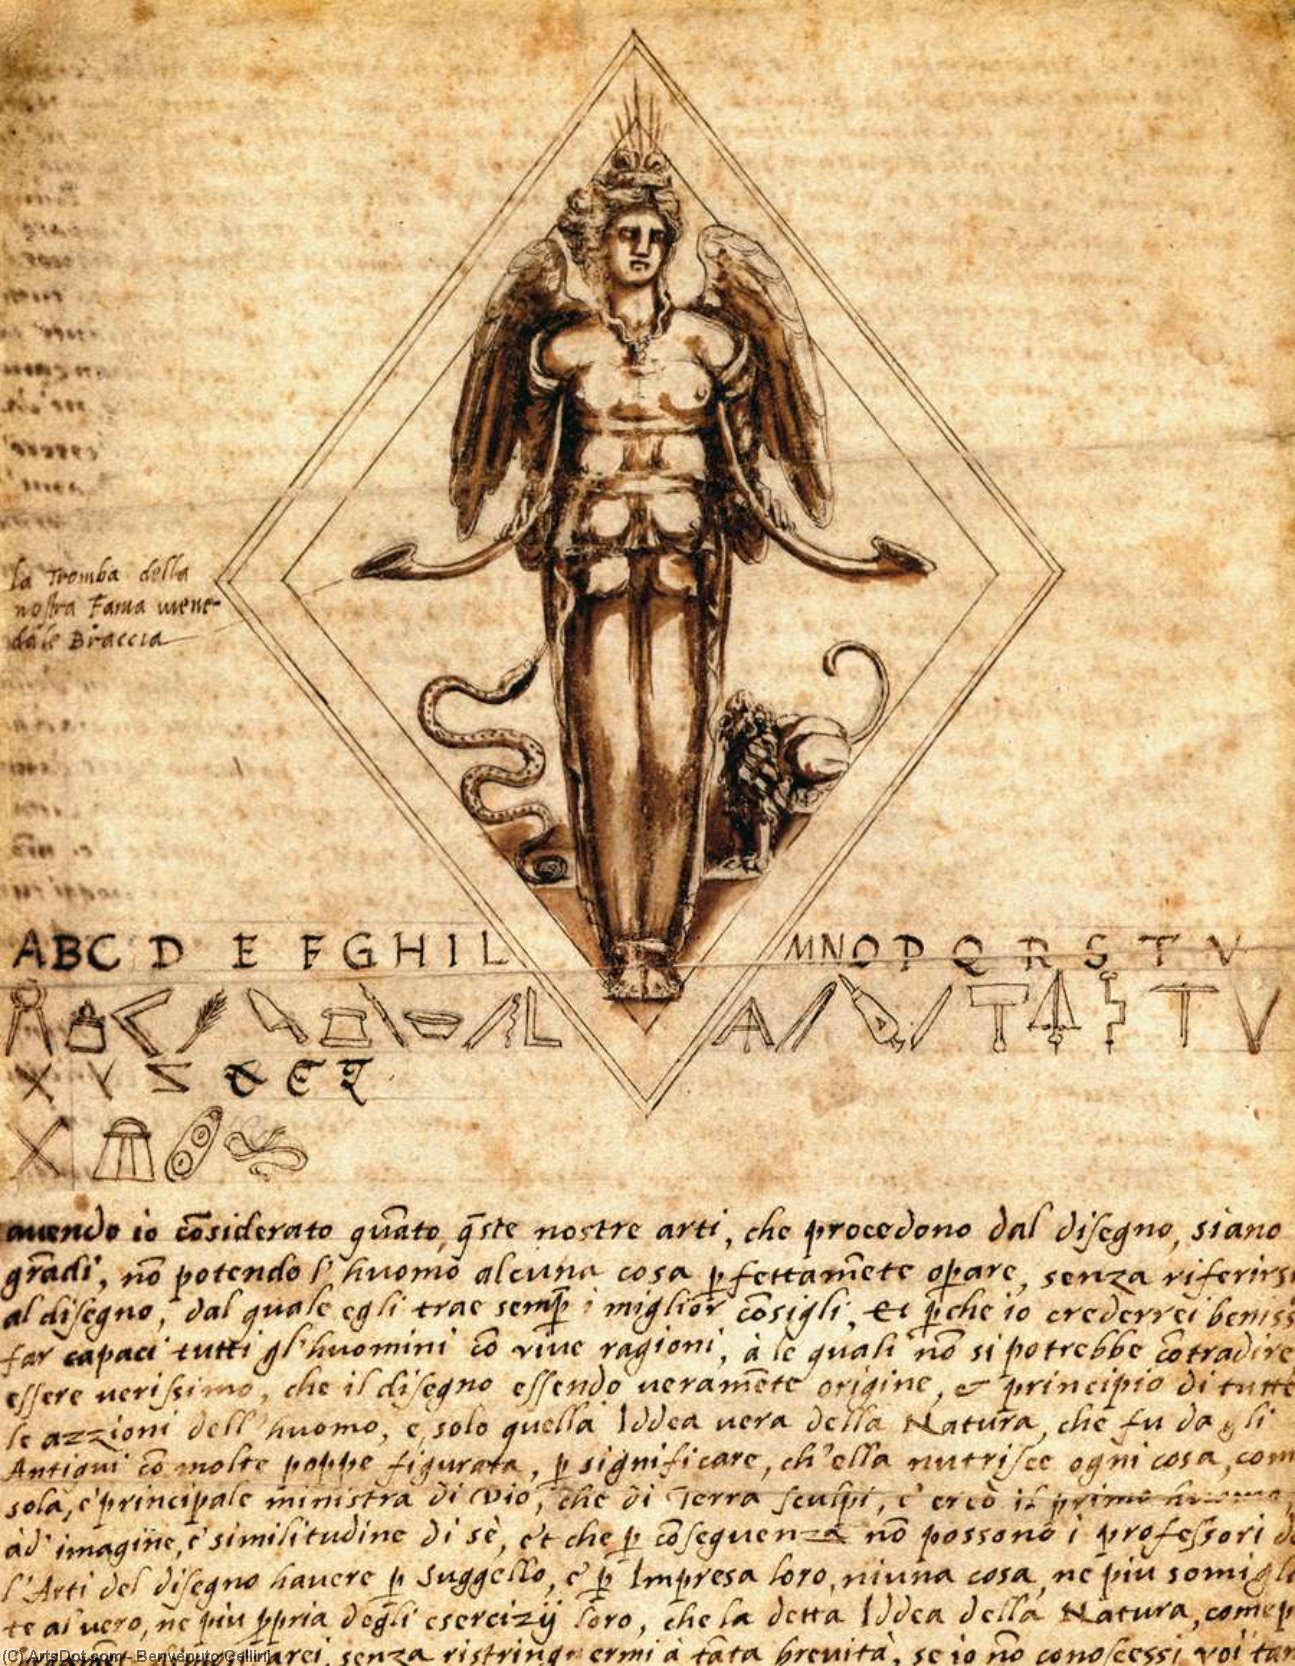 la Tromba della
nostra Fama viene
dale Braccia
ABC D E F G H I L MNO P Q R S T V
X Y Z & 
avendo io cōsiderato quāto, q̄ste nostre arti, che procedono dal disegno, siano
grādi, nō potendo l'huomo alcuna cosa p̱fettamēte opare, senza riferirsi
al disegno, dal quale egli trae semp̄ i miglior cōsigli, et p̱che io crederrei beniss
far capaci tutti gl'huomini cō vive ragioni, à le quali nō si potrebbe cōtradire
essere verissimo, che il disegno essendo veramēte origine, & principio di tutte
le azzioni dell'huomo, e solo quella Iddea vera della Natura, che fu dagli
Antiqui cō molte poppe figurata, p̱ significare, ch'ella nutrisce ogni cosa, com
sola, e' principale ministra di Dio, che di Terra sculpi, e' creò il primo huomo,
ad' imagine, e' similitudine di sè, et che p̱ cōseguenza nō possono i professori de
l'Arti del disegno havere p̱ Suggello, e' p̱ Impresa loro, niuna cosa, ne piu somiglī
te al vero, ne piu p̱pria degli esercizij loro, che la detta Iddea della Natura, come p
senza ristring ermi à tāta brevità, se io nō conoscessi voi tan
(C) ArtsDot.com - Benvenuto Cellini